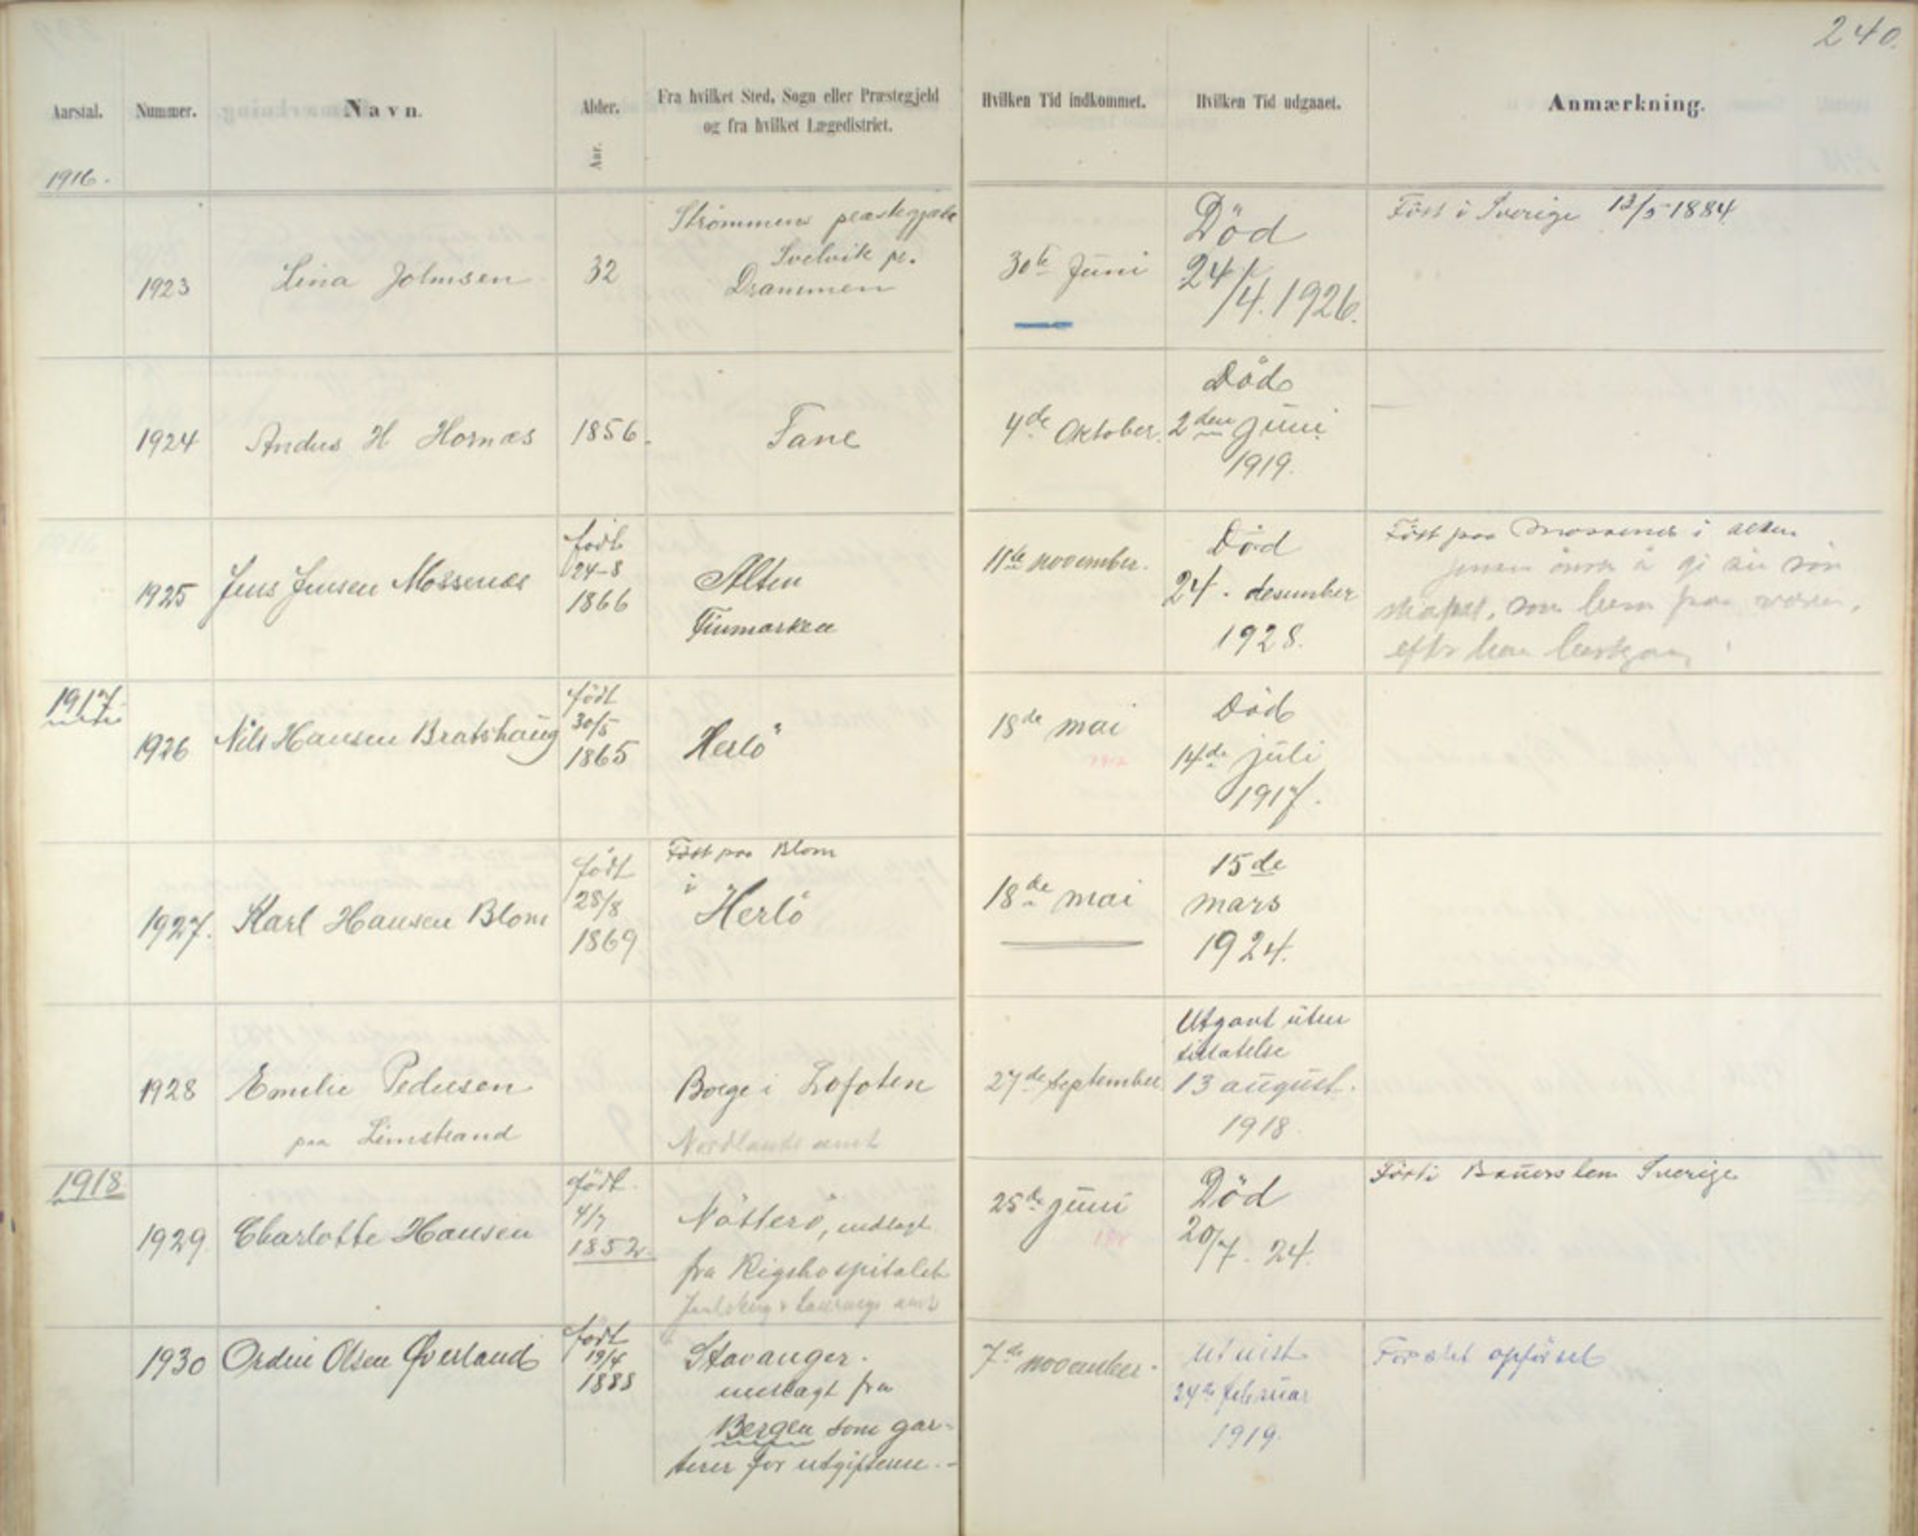 240.
Aarstal. Nummer. Navn. Alder. Fra hvilket Sted, Sogn eller Præstegjeld Hvilken Tid indkommet. Hvilken Tid udgaaet. Anmærkning.
og fra hvilket Lægedistrict.
Aar.
1916.
1923 Lina Johnsen 32
Strömmens
Svelvik pr.
Drammen
30te Juni
Död
24/4. 1926.
Född i Sverige 13/5 1884
1924 Andus H Hornæs 1856. Tane
4de Oktober.
Död
2den juni
1919.
1925 Jens Jensen Mossenæs
födt
24-8
1866
Alten
Finmarken
11te november.
Död
24. desember
1928.
Född paa i Alten
1917
1926 Nils Hansen Bratshaug
födt
30/5
1865
Herlö
18de mai
Död
14de juli
1917.
1927. Karl Hansen Blom
födt
28/8
1869
Född paa Blom
i
Herlö
18de mai
15de
mars
1924.
1928 Emilie Pedersen
paa Limstrand
Borge i Lofoten
Nordlands amt
27de September
Utgaat uten
tillatelse
13 august.
1918.
1918
1929 Charlotte Hansen
födt
4/7
1852.
Nötterö, indlagt
fra Rigshospitalet
25de juni
Död
20/7. 24.
Född i len Sverige
1930 Ordin Olsen Øverland
födt
19/4
1888
Stavanger.
indlagt fra
Bergen som gar-
terer for utgifterne. -
7de november.
utvist
24de februar
1919.
For slet opförsel